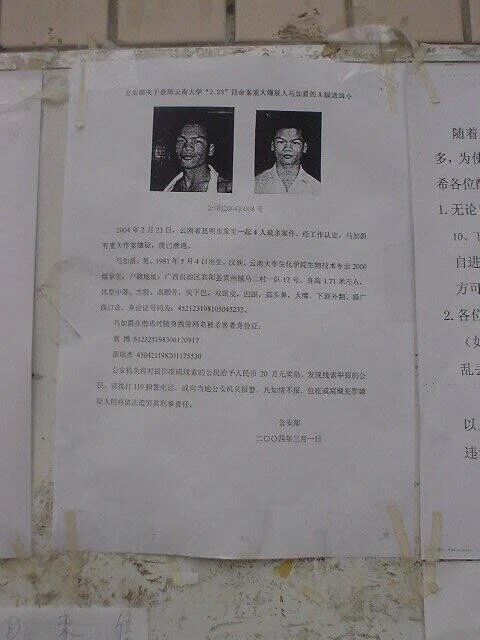 公安部关于查缉云南大学“2.23”四命案重大嫌疑人马加爵的A级通缉令
公缉[2004]0008号
2004年2月23日，云南省昆明市发生一起4人被杀案件。经工作认定，马加爵
有重大作案嫌疑，现已潜逃。
马加爵，男，1981年5月4日出生，汉族，云南大学生化学院生物技术专业2000
级学生，户籍地址：广西自治区宾阳县宾州镇马二村一队12号。身高1.71米左右，
体型中等，方脸，高颧骨，尖下巴，双眼皮，凹眼，蒜头鼻，大嘴，下唇外翻，操广
西口音。身份证号码为：452123198105045232。
马加爵在潜逃时随身携带两名被杀害者身份证：
龚 博 612325198306120917
邵瑞杰 450421198201175530
公安机关将对提供准确线索的公民给予人民币20万元奖励，发现线索举报的公
民，请拨打110报警电话，或向当地公安机关报警。凡知情不报、包庇或窝藏犯罪嫌
疑人的将依法追究其刑事责任。
公安部
二〇〇四年三月一日
随着
多，为使
希各位
1.无论
10、
自进
方可
2.各位
（如
乱丢
以
违